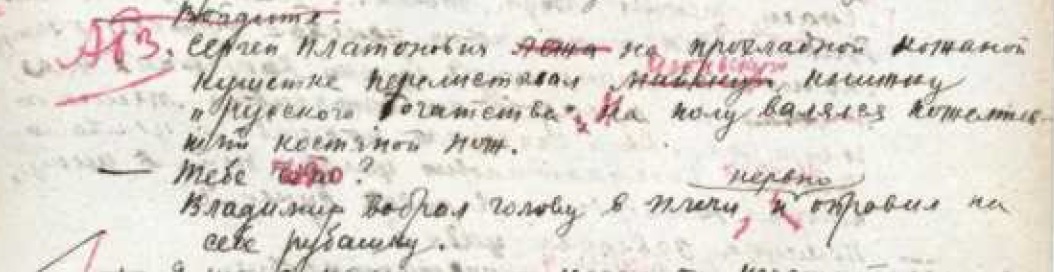 Войдите.
Сергей Платонович лежа на прохладной кожаной
кушетке перелистывал июньскую книжку
„Русского богатства“, На полу валялся пожелтев-
ший костяной нож.
— Тебе что?
нервно
Владимир вобрал голову в плечи, и оправил на
себе рубашку.